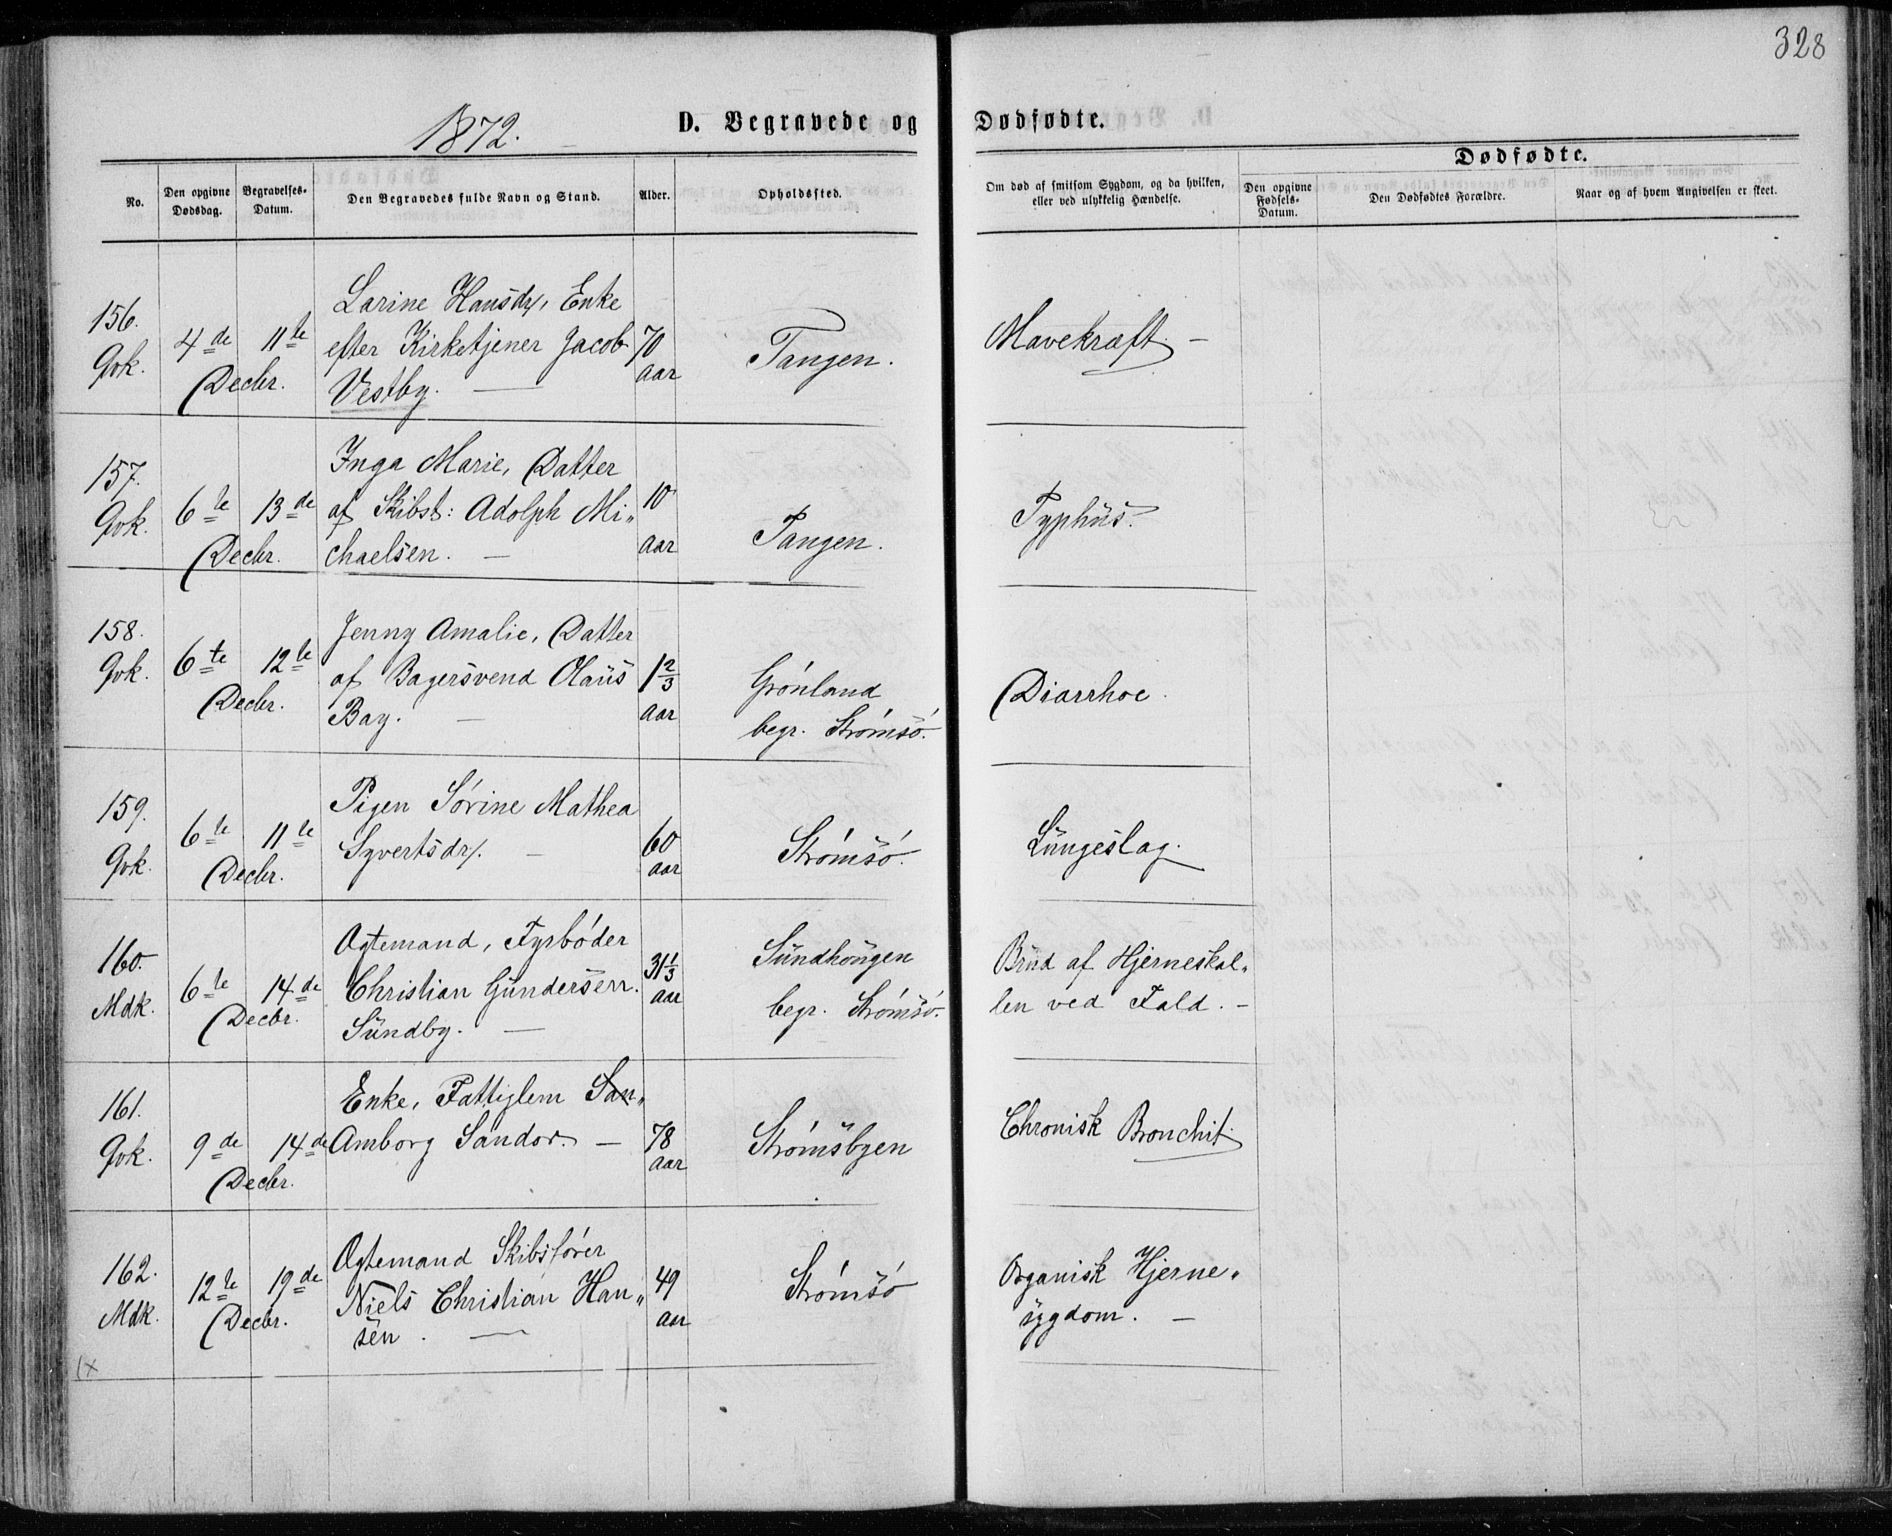 328
1872.
D. Begravede og Dødfødte.
Dødfødte.
No.
Den opgivne Dødsdag.
Begravelses-Datum.
Den Begravedes fulde Navn og Stand.
Alder.
Opholdssted.
Om død af smitsom Sygdom, og da hvilken, eller ved ulykkelig Hændelse.
Den opgivne Fødsels-Datum.
Den Dødfødtes Forældre.
Naar og af hvem Angivelsen er skeet.
156.
Qvk.
4de
11te
Decbr.
Larine Hansdr, Enke
efter Kirketjener Jacob
Vestby. —
70
aar
Tangen.
Mavekræft. —
157.
Qvk.
6te
13de
Decbr.
Inga Marie, Datter
af Skibst: Adolph Mi„
chaelsen. —
10
aar
Tangen.
Typhus.
158.
Qvk.
6te
12te
Decbr.
Jenny Amalie, Datter
af Bagersvend Olaus
Bay. —
1 2/3
aar
Grønland
begr. Strømsø.
Diarrhoe.
159.
Qvk.
6te
11te
Decbr.
Pigen Sørine Mathea
Syvertsdr. —
60
aar
Strømsø.
Lungeslag.
160.
Mdk.
6te
14de
Decbr.
Ægtemand, Fyrbøder
Christian Gundersen
Sundby. —
31 1/3
aar
Sundhaugen
begr. Strømsø.
Brud af Hjerneskal„
len ved Fald. —
161.
Qvk.
9de
14de
Decbr.
Enke, Fattiglem San„
Amborg Sandor. —
78
aar
Strømsbyen
Chronisk Bronchit.
162.
Mdk.
12te
19de
Decbr.
Ægtemand Skibsfører
Niels Christian Han„
sen. —
49
aar
Strømsø
Organisk Hjerne„
sygdom. —